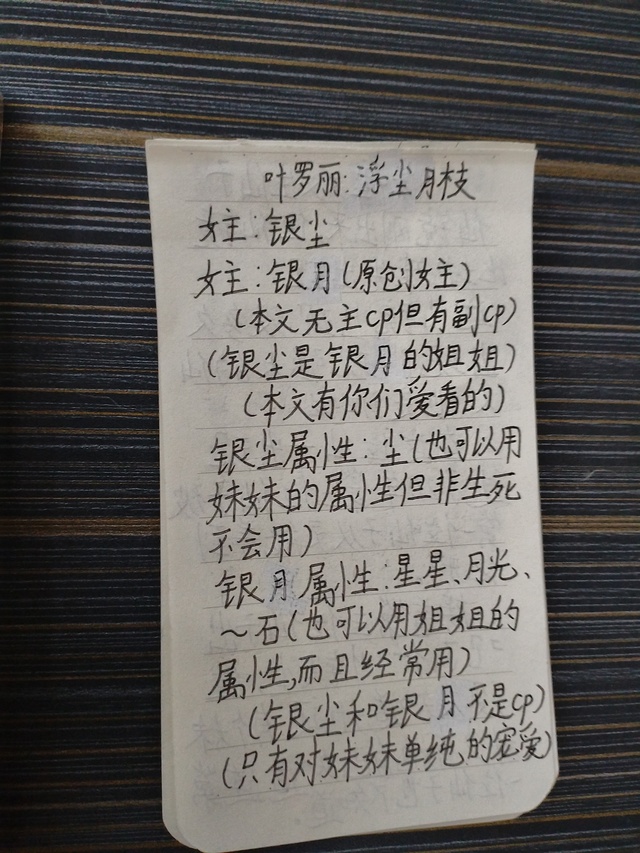 叶罗丽:浮尘月枝
女主:银尘
女主:银月(原创女主)
(本文无主cp但有副cp)
(银尘是银月的姐姐)
(本文有你们爱看的)
银尘属性:尘(也可以用
妹妹的属性但非生死
不会用)
银月属性:星星、月光、
～石(也可以用姐姐的
属性,而且经常用)
(银尘和银月不是cp)
(只有对妹妹单纯的宠爱)